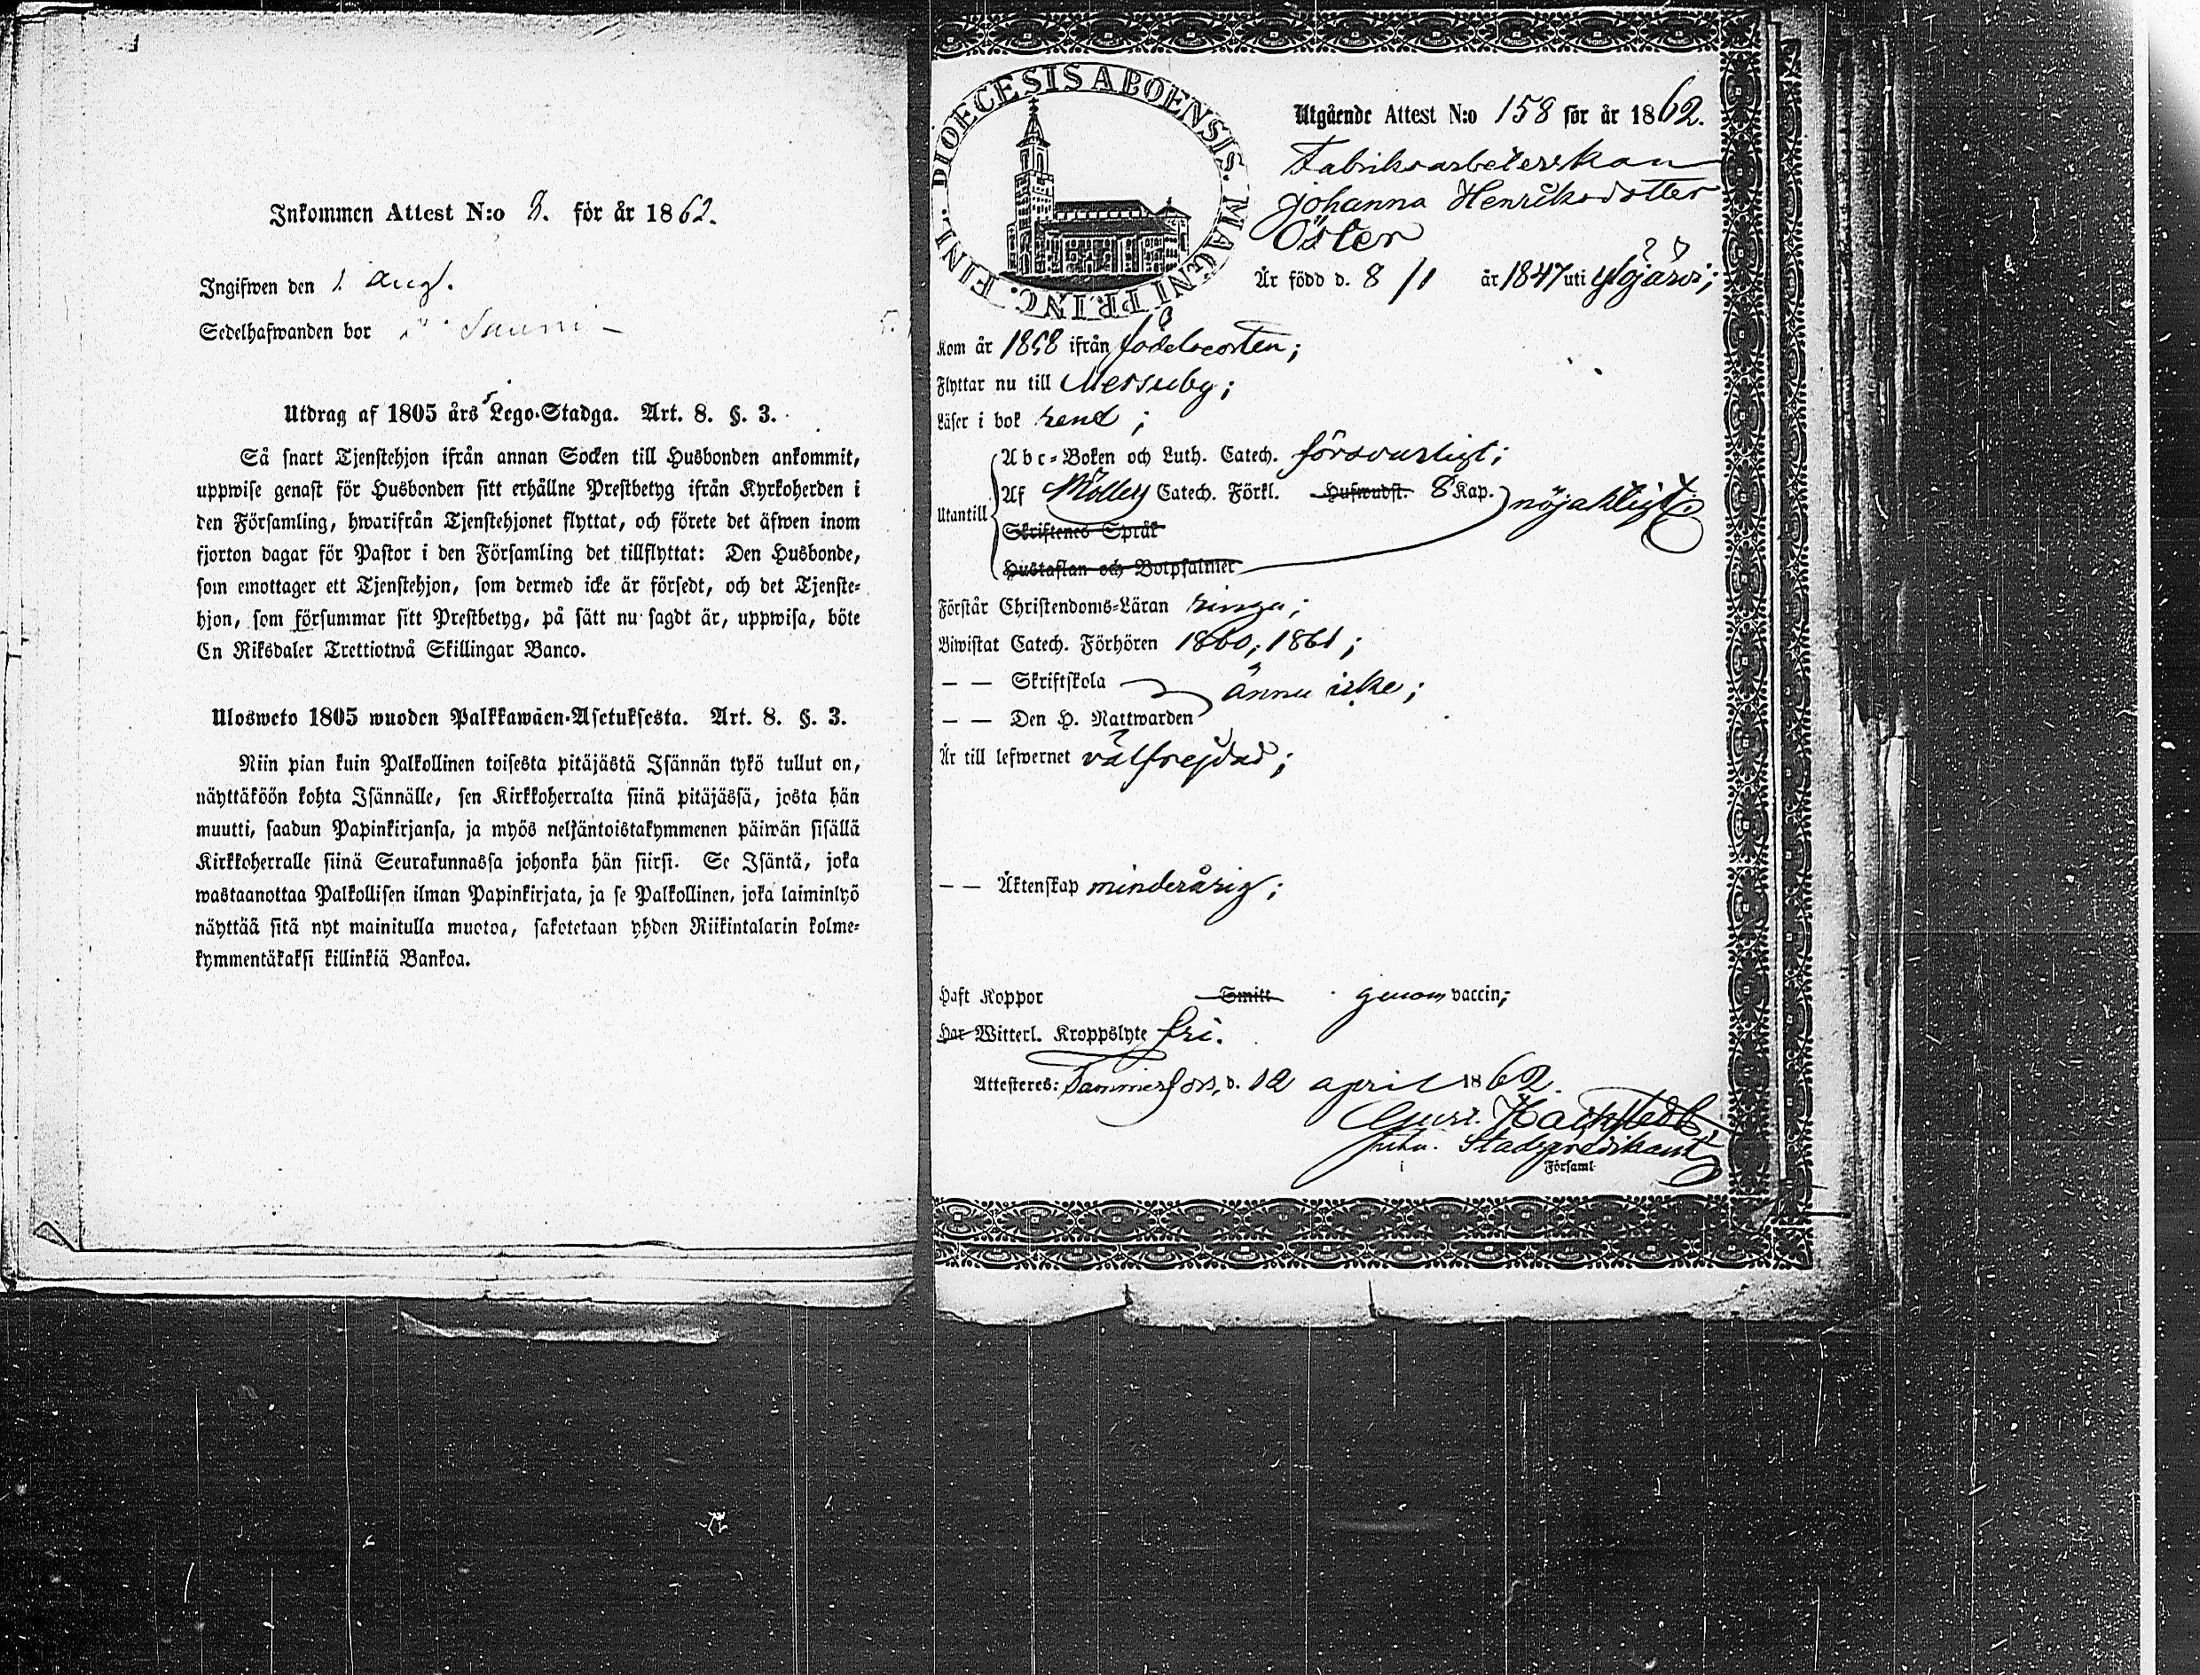 Inkommen Attest N:o 8. för år 1862.
Ingifwen den 1 Aug.
Sedelhafwanden bor
Utdrag af 1805 års Lego-Stadga. Art. 8. §. 3.
Så snart Tjenstehjon ifrån annan Socken till Husbonden ankommit,
uppwise genast för Husbonden sitt erhållne Prestbetyg ifrån Kyrkoherden i
den Församling, hwarifrån Tjenstehjonet flyttat, och förete det äfwen inom
fjorton dagar för Pastor i den Församling det tillflyttat: Den Husbonde,
som emottager ett Tjenstehjon, som dermed icke är försedt, och det Tjenste-
hjon, som försummar sitt Prestbetyg, på sätt nu sagdt är, uppwisa, böte
En Riksdaler Trettiotwå Skillingar Banco.
Ulosweto 1805 wuoden Palkkawäen-Asetuksesta. Art. 8. §. 3.
Niin pian kuin Palkollinen toisesta pitäjästä Isännän tykö tullut on,
näyttäköön kohta Isännälle, sen Kirkkoherralta siinä pitäjässä, josta hän
muutti, saadun Papinkirjansa, ja myös neljäntoistakymmenen päiwän sisällä
Kirkkoherralle siinä Seurakunnassa johonka hän siirsi. Se Isäntä, joka
wastaanottaa Palkollisen ilman Papinkirjata, ja se Palkollinen, joka laiminlyö
näyttää sitä nyt mainitulla muotoa, sakotetaan yhden Riikintalarin kolme-
kymmentäkaksi killinkiä Bankoa.
DIOECESIS ABOENSIS. MAGNI PRINC. FINL.
Utgående Attest N:o 158 för år 1862.
Fabriksarbeterskan
Johanna Henriksdotter
Öster
Är född d. 8/1 år 1847 uti Ylöjärvi;
Kom år 1858 ifrån födelseorten;
Flyttar nu till Messuby;
Läser i bok rent;
Utantill
Abc-Boken och Luth. Catech. försvarligt;
Af Möllers Catech. Förkl. Hufwudst. 8 Kap. nöjaktligt;
Skriftenes Språk
Hustaflan och Botpsalmer
Förstår Christendoms-Läran ringa;
Biwistat Catech. Förhören 1860, 1861;
— — Skriftskola ännu icke;
— — Den H. Nattwarden
Är till lefwernet välfrejdad;
— — Äktenskap minderårig;
Haft Koppor Smitt genom vaccin;
Har Witterl. Kroppslyte fri.
Attesteres: Tammerfors, d. 12 april 1862.
Stadspredikant
i Församl.